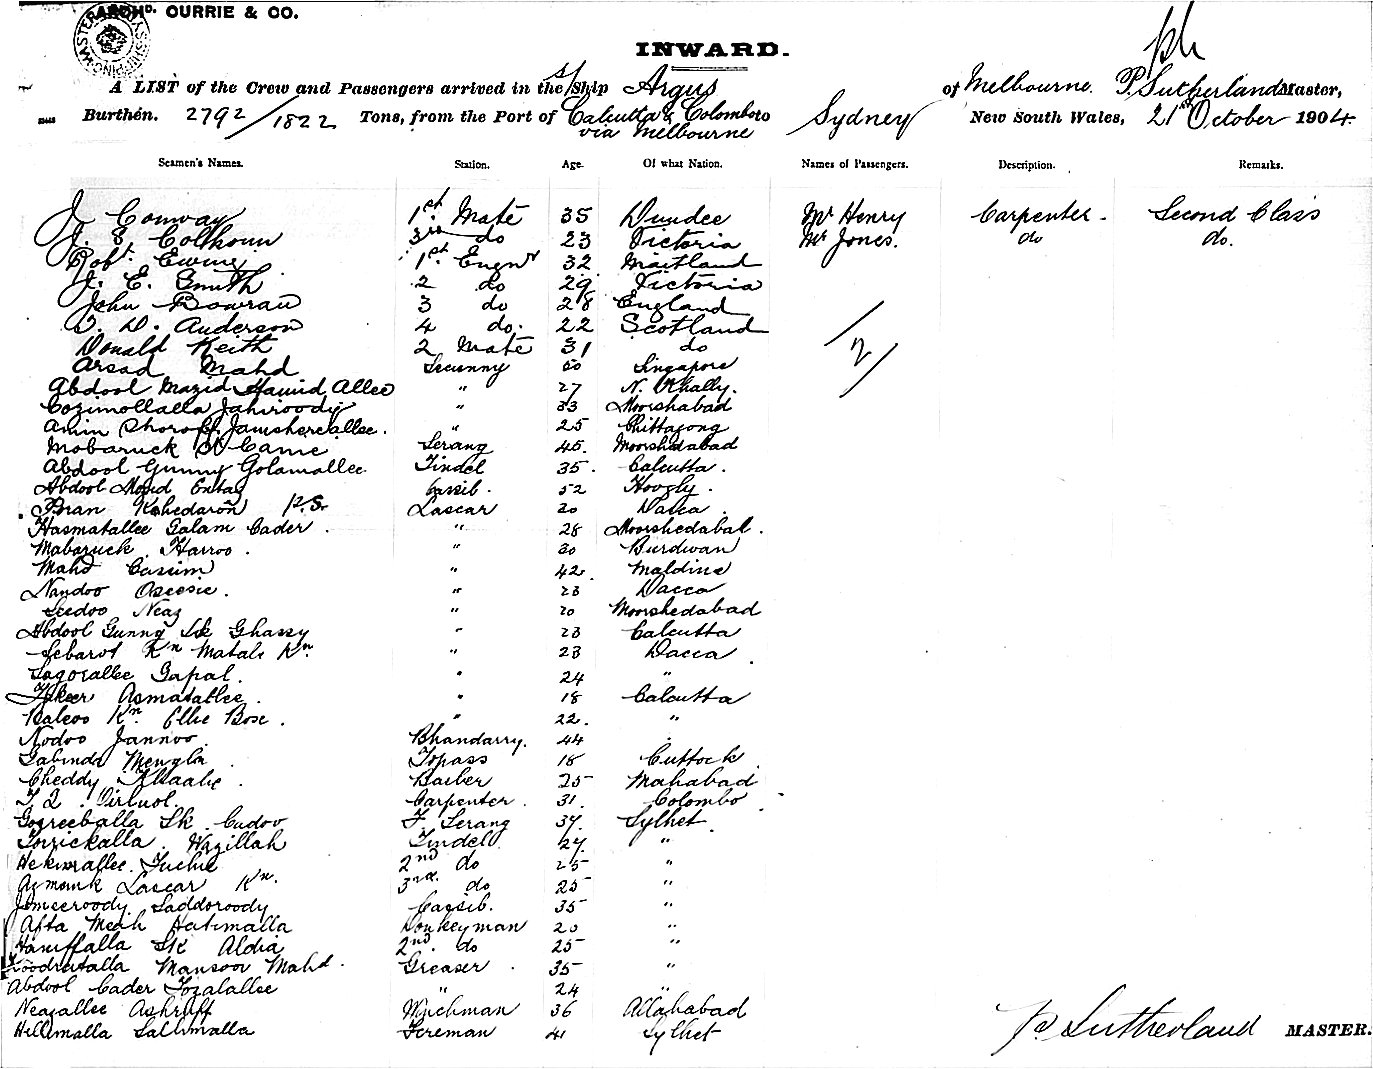 ARCHD. CURRIE & CO.
INWARD.
A LIST of the Crew and Passengers arrived in the s/Ship Argus of Melbourne. P. Sutherland Master,
Burthen. 2792/1822 Tons, from the Port of Calcutta & Colombo via Melbourne Sydney New South Wales, 21st October 1904.
Seamen's Names. Station. Age. Of what Nation. Names of Passengers. Description. Remarks.
J Conway 1st Mate 35 Dundee Mr Henry Carpenter. Second Class
J. S Colhoun 3rd do 23 Victoria Mr Jones. do do.
Robt. Ewing 1st. Engnr 32 Maitland
J. E. Smith 2 do 29 Victoria
John Bowran 3 do 28 England
D. Anderson 4 do. 22 Scotland
Donald Keith 2 Mate 31 do
Arsad Mahd Secunny 50 Singapore
Abdool Mazid Hamid Allee " 27 N. Khally.
Cozimollalla Jahiroody " 33 Moorshabad
Amin Shoroff Jamsherallee. " 25 Chittagong
Mobaruck Came Serang 45. Moorshedabad
Abdool Gunny Golamallee Tindel 35. Calcutta.
Abdool Majid Cassib. 52 Hoogly.
P.S. Lascar 20 Dacca
Hasmatallee Galam Cader. " 28 Moorshedabad.
Mabaruck Harroo. " 30 Burdwan
Mahd Cassim " 42 Maldive
Nandoo. " 23 Dacca
Seedoo Neaz " 20 Moorshedabad
Abdool Gunny Sk Ghassy " 23 Calcutta
Sebarot Kn Matali Kn " 23 Dacca.
Sagorallee Gapal. " 24 "
Fakeer Asmatallee. " 18 Calcutta
Baleoo Kn. Ellie Bose. " 22. "
Nodoo Jannoo Bhandarry. 44
Gabinda Mengla Topass 18 Cuttock
Cheddy Barber 25 Mahabad
Carpenter. 31. Colombo.
Gogreeballa Sk Cudov F. Serang 37. Sylhet.
Torrickalla. Wazillah Tindel. 27 "
Hekmrallee. Fuchie 2nd do 25 "
Lascar Kn. 3rd. do 25 "
Jomeeroody Saddoroody Cassib. 35 "
Afta Meah Hatimalla Donkeyman 20 "
Haniffalla Sk Aldia 2nd. do 25 "
Mansoor Mahd. Greaser. 35 "
Abdool Cader Fozalallee " 24 "
Neazallee Ashruff Winchman 36 Allahabad
Hellimalla Sallimalla Foreman 41 Sylhet
2
P. Sutherland MASTER.